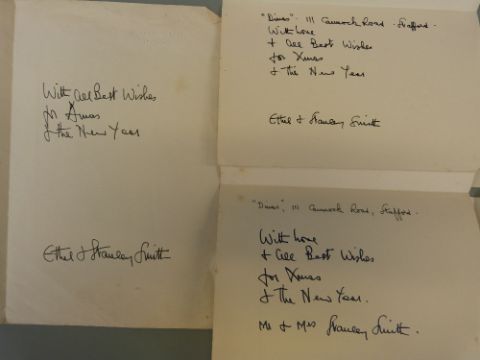 With all Best Wishes
for Xmas
& the New Year
Ethel & Stanley Smith
111 Cannock Road Stafford.
With love
& all Best Wishes
for Xmas
& the New Year
Ethel & Stanley Smith
111 Cannock Road, Stafford.
With love
& all Best Wishes
for Xmas
& the New Year.
Mr & Mrs Stanley Smith.